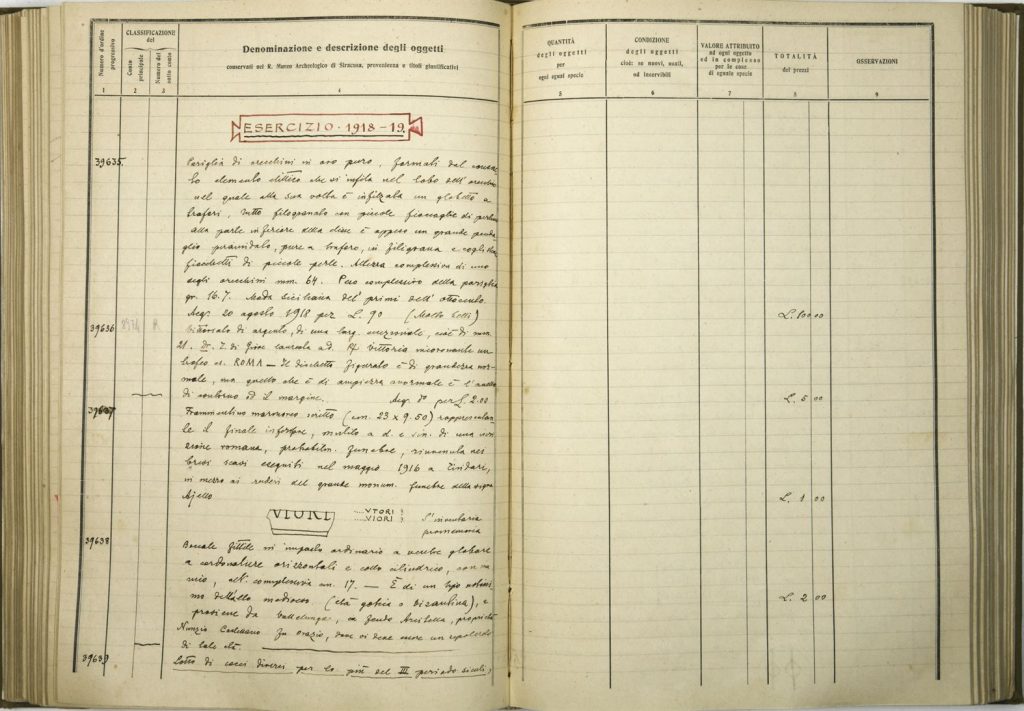 Numero d'ordine progressivo
CLASSIFICAZIONE del
Conto principale
Numero del sotto conto
Denominazione e descrizione degli oggetti
conservati nel R. Museo Archeologico di Siracusa, provenienza e titoli giustificativi
1 2 3 4
QUANTITÀ degli oggetti per ogni egual specie
CONDIZIONE degli oggetti cioè: se nuovi, usati, od inservibili
VALORE ATTRIBUITO ad ogni oggetto ed in complesso per le cose di eguale specie
TOTALITÀ dei prezzi
OSSERVAZIONI
5 6 7 8 9
ESERCIZIO · 1918-19
39635. Pariglia di orecchini in oro puro, formati dal
lo elemento che si infila nel lobo dell'
nel quale alla sua volta è infilzato un globetto a
trafori, tutto filogranato con piccole di
alla parte inferiore della è appeso un grande
glio piramidato, pure a traforo, in filigrana e
fiocchetti di piccole perle. Altezza complessiva di uno
degli orecchini mm. 64. Peso complessivo della pariglia
gr. 16.7. Moda siciliana dei primi dell'ottocento.
Acq. 20 agosto 1918 per L. 90
L. 100 00
39636 R. Vittoriato di argento, di una larg. eccezionale, cioè di mm.
21. Dr. T. di Giove laureata a d. R) Vittoria incoronante un
trofeo es. ROMA — Il dischetto figurato è di grandezza nor-
male, ma quello che è di ampiezza anormale è l'
di contorno ed il margine. Acq. per L. 2.00
L. 5 00
39637 Frammentino marmoreo scritto (cm. 23 x 9.50)
te il finale inferiore, mutilo a d. e sin. di una iscri
zione romana, probabilm. funebre, rinvenuta nei
brevi scavi eseguiti nel maggio 1916 a Tindari,
in mezzo ai ruderi del grande monum. funebre della
Ajello
L. 1 00
VTORI
....VTORI
....VIORI
S'inventaria
promemoria
39638 Boccale fittile in impasto ordinario a ventre globare
a cordonature orizzontali e collo cilindrico, con ma
nico, alt. complessiva cm. 17. — È di un tipo notissi
mo dell'alto medioevo (età gotica o bizantina), e
proviene da Vallelunga, ex feudo, proprietà
Nunzio Castellano fu Orazio, dove vi deve essere un sepolcreto
di tale età.
L. 2 00
39639 Lotto di cocci diversi per lo più del III periodo siculo,